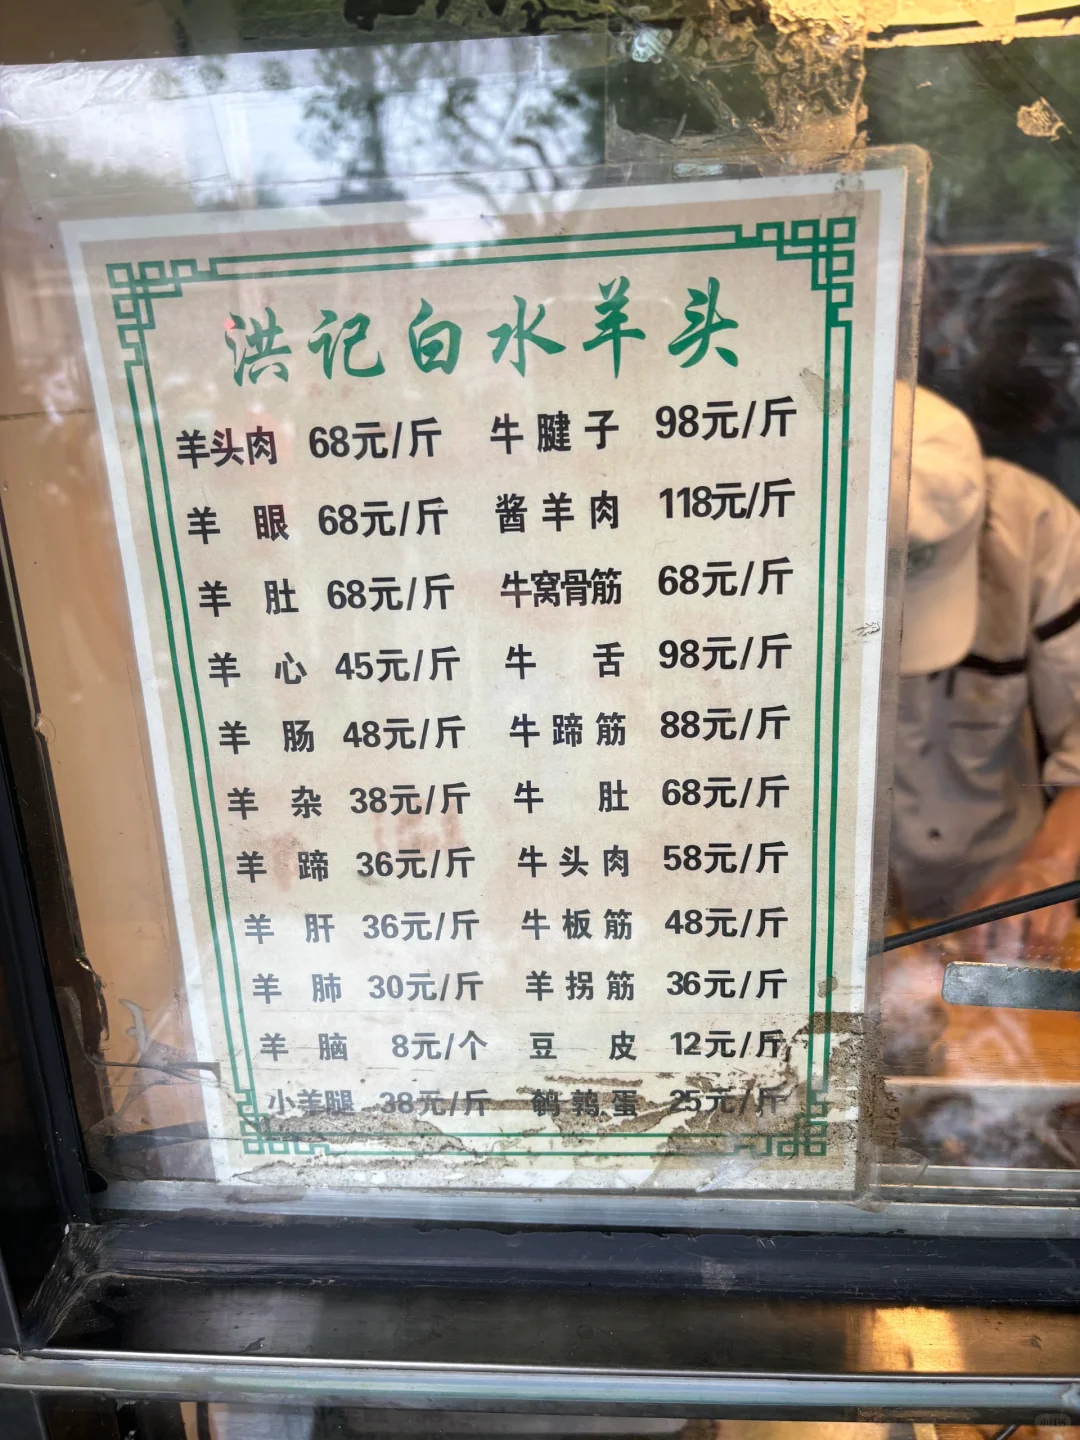 洪记白水羊头
羊头肉 68元/斤 牛腱子 98元/斤
羊眼 68元/斤 酱羊肉 118元/斤
羊肚 68元/斤 牛窝骨筋 68元/斤
羊心 45元/斤 牛舌 98元/斤
羊肠 48元/斤 牛蹄筋 88元/斤
羊杂 38元/斤 牛肚 68元/斤
羊蹄 36元/斤 牛头肉 58元/斤
羊肝 36元/斤 牛板筋 48元/斤
羊肺 30元/斤 羊拐筋 36元/斤
羊脑 8元/个 豆皮 12元/斤
小羊腿 38元/斤 鹌鹑蛋 25元/斤
小红书